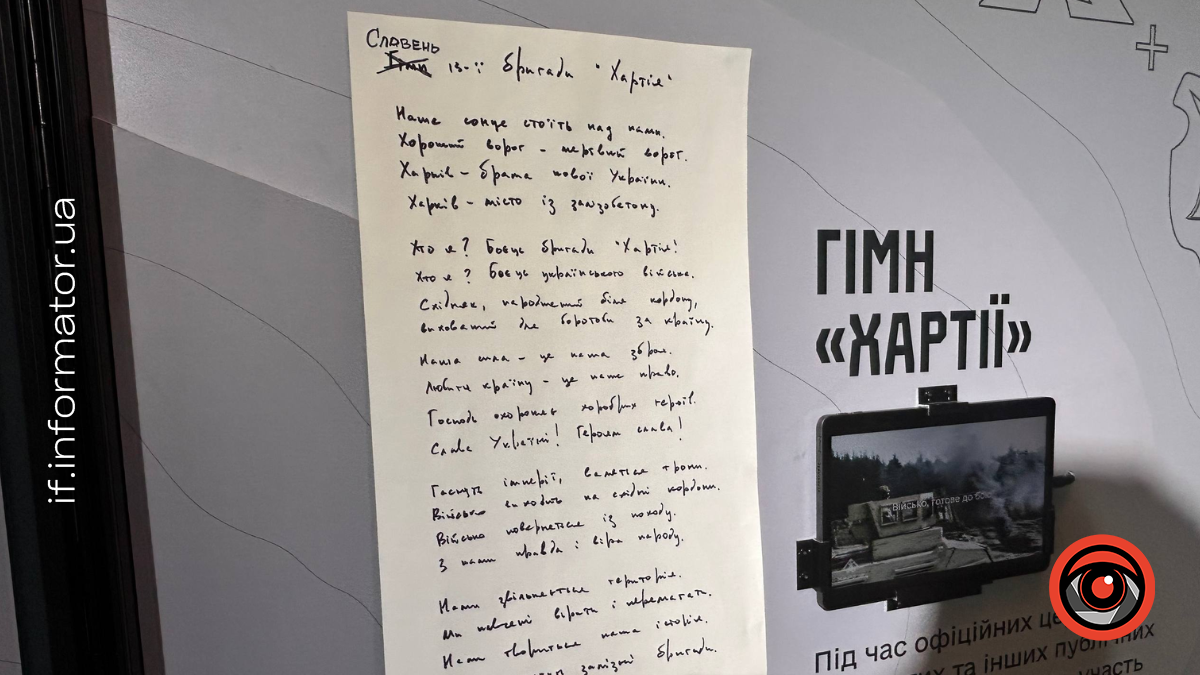 if.informator.ua
Славень
Гімн 13-ї бригади "Хартія"
Наше сонце стоїть над нами.
Хороший ворог - мертвий ворог.
Харків - брама нової України.
Харків - місто із залізобетону.
Хто я? Боєць бригади "Хартія"!
Хто я? Боєць українського війська.
Східняк, народжений біля кордону,
вихований для боротьби за країну.
Наша сила - це наша зброя.
Любити країну - це наше право.
Господь охороняє хоробрих героїв.
Слава Україні! Героям слава!
Гаснуть імперії, валяться трони.
Військо виходить на східні кордони.
Військо повернеться із походу.
З нами правда і віра народу.
Нами звільняється територія.
Ми навчені вірити і перемагати.
Нами твориться наша історія.
залізної бригади.
ГІМН
«ХАРТІЇ»
Військо, готове до
Під час офіційних
та інших публічних
участь